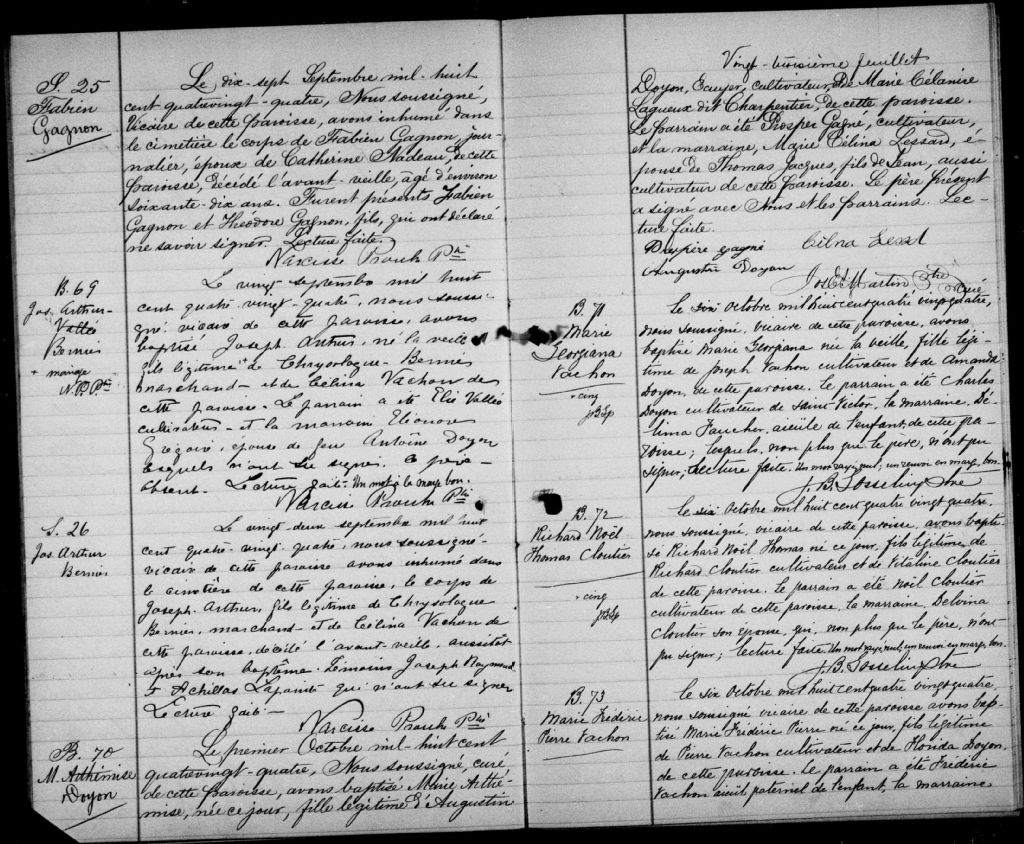 S. 25
Fabien
Gagnon
Le dix-sept Septembre mil-huit
cent-quatrevingt-quatre, Nous soussigné,
Vicaire de cette Paroisse, avons inhumé dans
le cimetière le corps de Fabien Gagnon, jour-
nalier, époux de Catherine Nadeau, de cette
Paroisse, décédé l'avant-veille, agé d'environ
soixante-dix ans. Furent présents Fabien
Gagnon et Théodore Gagnon, fils, qui ont déclaré
ne savoir signer. Lecture faite.
Narcisse Proulx Ptre
B. 69
Jos. Arthur-
Vallée
Bernier
+ mariage
N.P. Ptre
Le vingt-septembre mil huit
cent quatre-vingt-quatre, nous sous-
gné vicaire de cette paroisse, avons
baptisé Joseph Arthur, né la veille
fils légitime de Chrysologue Bernier
marchand - et de Célina Vachon de
cette paroisse. Le parrain a été Elie Vallée
cultivateur - et la marraine Eléonore
Grégoire, épouse de feu Antoine Doyon
lesquels n'ont su signer. Le père
absent. Lecture faite. Un mot à la marge bon.
Narcisse Proulx Ptre
S. 26
Jos. Arthur
Bernier
Le vingt-deux septembre mil huit
cent quatre-vingt-quatre, nous soussigné
vicaire de cette paroisse avons inhumé dans
le cimetière de cette paroisse, le corps de
Joseph-Arthur, fils légitime de Chrysologue
Bernier, marchand - et de Célina Vachon de
cette paroisse, décédé l'avant-veille, aussitôt
après son baptême. Témoins Joseph Raymond
& Achillas Lapointe qui n'ont su signer
Lecture faite -
Narcisse Proulx Ptre
B. 70
M. Adthémise
Doyon
Le premier Octobre mil-huit cent
quatrevingt-quatre, Nous soussigné curé
de cette Paroisse, avons baptisé Marie Arthé-
mise, née ce jour, fille légitime d'Augustin
Vingt-troisième feuillet
Doyon, Ecuyer, cultivateur, & de Marie Célanire
Lagueux dit Charpentier, de cette paroisse.
Le parrain a été Prosper Gagné, cultivateur,
et la marraine, Marie Célina Lessard, é-
pouse de Thomas Jacques, fils de Jean, aussi
cultivateur de cette Paroisse. Le père présent
a signé avec Nous et les Parrains. Lec-
ture faite.
Prospère gagné
Augustin Doyon
Jos. E. Martin, Ptre Curé
B. 71
Marie
Georgiana
Vachon
+ cinq
JBGp
Le six Octobre mil huit cent quatre vingt quatre,
nous soussigné, vicaire de cette paroisse, avons
baptisé Marie Georgiana née la veille, fille légi-
time de Joseph Vachon cultivateur et de Amanda
Doyon, de cette paroisse. Le parrain a été Charles
Doyon cultivateur de Saint Victor, la marraine, Dé-
lima Faucher, aieüle de l'enfant, de cette pa-
roisse; lesquels, non plus que le père, n'ont pu
signer; lecture faite. Un mot rayé, nul; un renvoi en marge, bon.
J. B. Gosselin, ptre
B. 72
Richard Noël
Thomas Cloutier
+ cinq
JBGp
Le six Octobre mil huit cent quatre vingt quatre,
nous soussigné, vicaire de cette paroisse, avons bapti-
sé Richard Noël Thomas né ce jour, fils légitime de
Richard Cloutier cultivateur et de Vitaline Cloutier
de cette paroisse. Le parrain a été Noël Cloutier
cultivateur de cette paroisse, la marraine, Delvina
Cloutier son épouse, qui, non plus que le père, n'ont
pu signer; lecture faite. Un mot rayé, nul; un renvoi en marge, bon.
J. B. Gosselin, ptre
B. 73
Marie Frédéric
Pierre Vachon
Le six Octobre mil huit cent quatre vingt quatre,
nous soussigné vicaire de cette paroisse avons bap-
tisé Marie Frédéric Pierre né ce jour, fils légitime
de Pierre Vachon cultivateur et de Florida Doyon,
de cette paroisse. Le parrain a été Frédéric
Vachon aieül paternel de l'enfant, la marraine,